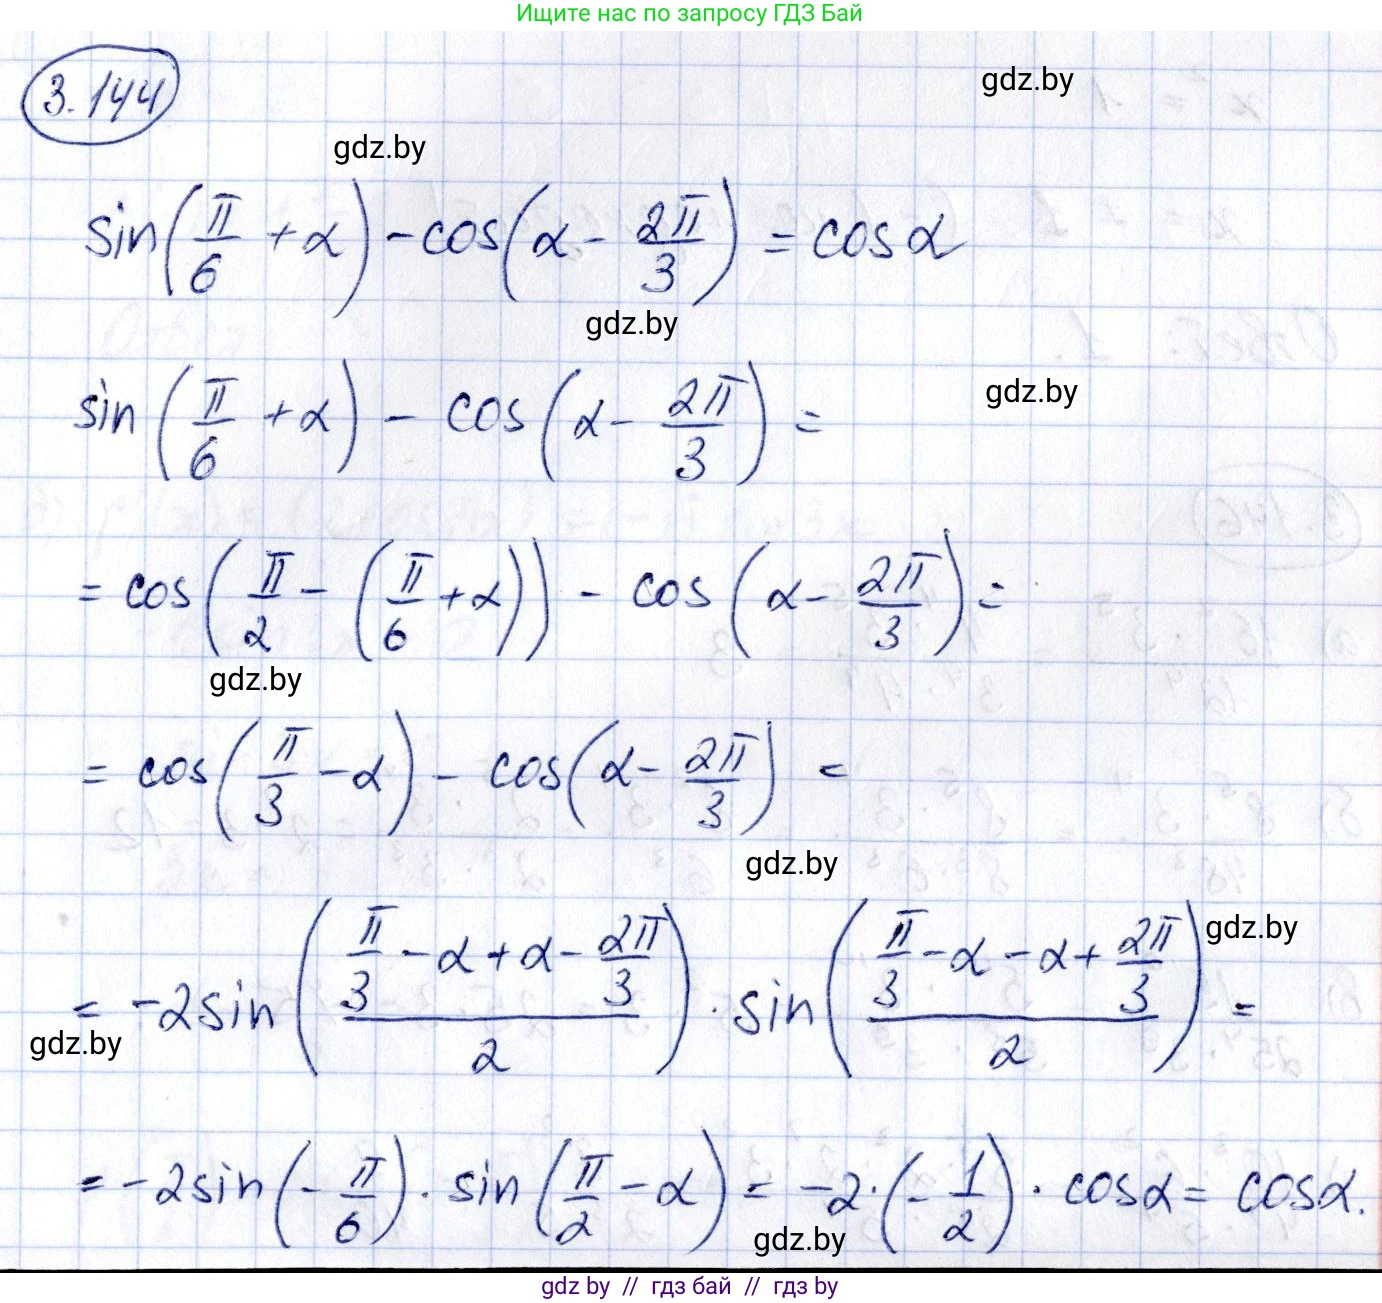 Ищите нас по запросу ГДЗ Бай
3.144
gdz.by
gdz.by
sin(π/6 + α) - cos(α - 2π/3) = cosα
gdz.by
gdz.by
sin(π/6 + α) - cos(α - 2π/3) =
= cos(π/2 - (π/6 + α)) - cos(α - 2π/3) =
gdz.by
= cos(π/3 - α) - cos(α - 2π/3) =
gdz.by
gdz.by
= -2sin((π/3 - α + α - 2π/3)/2) · sin((π/3 - α - α + 2π/3)/2) =
gdz.by
= -2sin(-π/6) · sin(π/2 - α) = -2·(-1/2) · cosα = cosα.
gdz.by
gdz by // гдз бай // гдз by